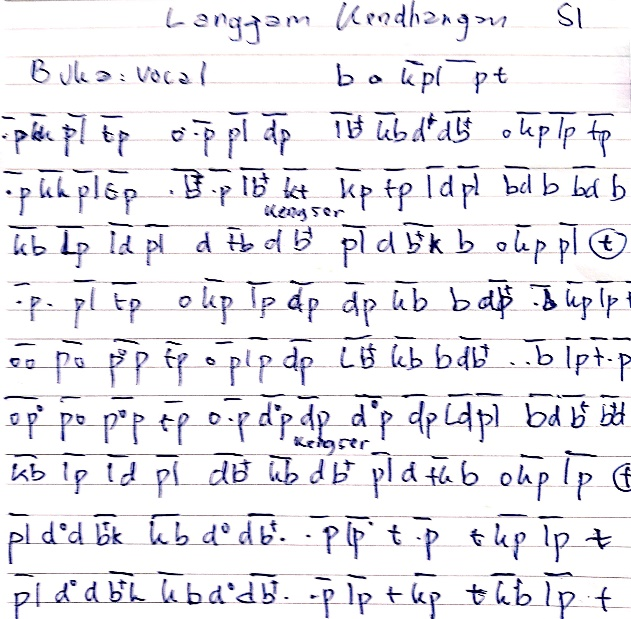 Langgam Kendhangan Sl
Buka: vocal b o kpl pt
.pkk pl tp o .p pl dp lb kb d db okp lp tp
.p kk pl tp .b .p lb kt kp tp ld pl bd b bd b
Kengser
kb lp ld pl d tb d b pl d b k b okp pl t
.p. pl tp o kp lp dp dp kb b db .b kp lp t
oo po p°p tp o plp dp lb kb b db ..b lp t.p
op° po p°p tp o .p d°p dp d°p dp ldpl bd b bd
Kengser
kb lp ld pl db kb db pl d t k b okp lp t
pl d°d bk kb d° db. .p lp t .p t kp lp t
pl d°d bk kb d°db. .p lp t kp t kb lp t